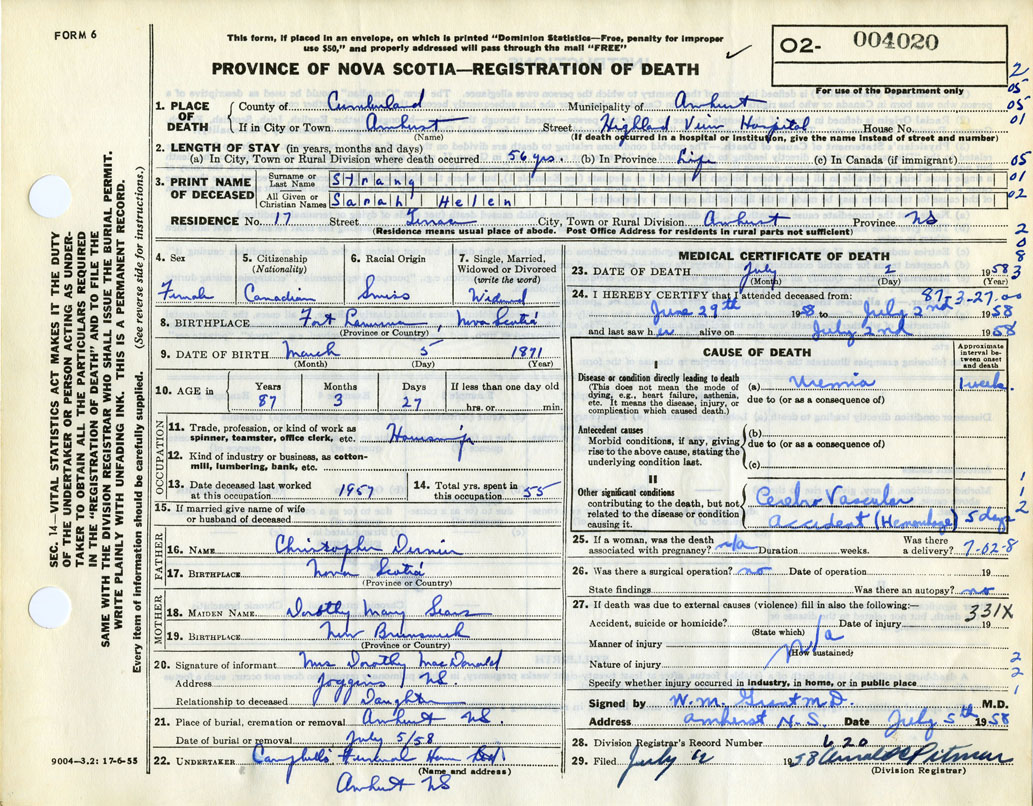 FORM 6
This form, if placed in an envelope, on which is printed "Dominion Statistics—Free, penalty for improper
use $50," and properly addressed will pass through the mail "FREE"
O2- 004020
For use of the Department only
PROVINCE OF NOVA SCOTIA—REGISTRATION OF DEATH
1. PLACE OF DEATH
County of Cumberland Municipality of Amherst
If in City or Town Amherst Street Highland View Hospital House No.
(Name) (If death occurred in a hospital or institution, give the name instead of street and number)
2. LENGTH OF STAY (in years, months and days)
(a) In City, Town or Rural Division where death occurred 56 yrs. (b) In Province Life (c) In Canada (if immigrant)
3. PRINT NAME OF DECEASED
Surname or Last Name Strang
All Given or Christian Names Sarah Helen
RESIDENCE No. 17 Street City, Town or Rural Division Amherst Province NS
(Residence means usual place of abode. Post Office Address for residents in rural parts not sufficient)
4. Sex Female
5. Citizenship (Nationality) Canadian
6. Racial Origin Swiss
7. Single, Married, Widowed or Divorced (write the word) Widowed
8. BIRTHPLACE Fort Lawrence, Nova Scotia
(Province or Country)
9. DATE OF BIRTH March 5 1871
(Month) (Day) (Year)
10. AGE in Years 87 Months 3 Days 27 If less than one day old hrs. or min.
OCCUPATION
11. Trade, profession, or kind of work as spinner, teamster, office clerk, etc.
12. Kind of industry or business, as cotton-mill, lumbering, bank, etc.
13. Date deceased last worked at this occupation 1957
14. Total yrs. spent in this occupation 55
15. If married give name of wife or husband of deceased
FATHER
16. NAME Christopher
17. BIRTHPLACE Nova Scotia
(Province or Country)
MOTHER
18. MAIDEN NAME Dorothy Mary Sears
19. BIRTHPLACE New Brunswick
(Province or Country)
20. Signature of informant Mrs Dorothy MacDonald
Address Joggins NS.
Relationship to deceased Daughter
21. Place of burial, cremation or removal Amherst NS.
Date of burial or removal July 5/58
22. UNDERTAKER Campbell's Funeral Home
(Name and address)
Amherst NS
9004—3.2: 17-6-55
MEDICAL CERTIFICATE OF DEATH
23. DATE OF DEATH July 2 1958
(Month) (Day) (Year)
24. I HEREBY CERTIFY that I attended deceased from: 87-3-27.00
June 29th 1958 to July 2nd 1958
and last saw her alive on July 2nd 1958
CAUSE OF DEATH
Approximate interval between onset and death
I
Disease or condition directly leading to death
(This does not mean the mode of dying, e.g., heart failure, asthenia, etc. It means the disease, injury, or complication which caused death.)
(a) Uremia 1 week.
due to (or as a consequence of)
Antecedent causes
Morbid conditions, if any, giving rise to the above cause, stating the underlying condition last.
(b)
due to (or as a consequence of)
(c)
II
Other significant conditions
contributing to the death, but not related to the disease or condition causing it.
Cerebro Vascular
Accident (Hemorrhage) 5 days
25. If a woman, was the death associated with pregnancy? n/a Duration weeks. Was there a delivery? 7-02-8
26. Was there a surgical operation? no Date of operation 19
State findings Was there an autopsy? no
27. If death was due to external causes (violence) fill in also the following:— 331X
Accident, suicide or homicide? Date of injury 19
(State which)
Manner of injury n/a
(How sustained)
Nature of injury
Specify whether injury occurred in industry, in home, or in public place
Signed by W.M. Grant M.D. M.D.
Address Amherst N.S. Date July 5th 1958
28. Division Registrar's Record Number 620
29. Filed July 1958 Pitman
(Division Registrar)
SEC. 14—VITAL STATISTICS ACT MAKES IT THE DUTY
OF THE UNDERTAKER OR PERSON ACTING AS UNDER-
TAKER TO OBTAIN ALL THE PARTICULARS REQUIRED
IN THE "REGISTRATION OF DEATH" AND TO FILE THE
SAME WITH THE DIVISION REGISTRAR WHO SHALL ISSUE THE BURIAL PERMIT.
WRITE PLAINLY WITH UNFADING INK. THIS IS A PERMANENT RECORD.
Every item of information should be carefully supplied. (See reverse side for instructions.)
2
05
01
05
01
02
2
0
8
3
1
1
2
2
2
1